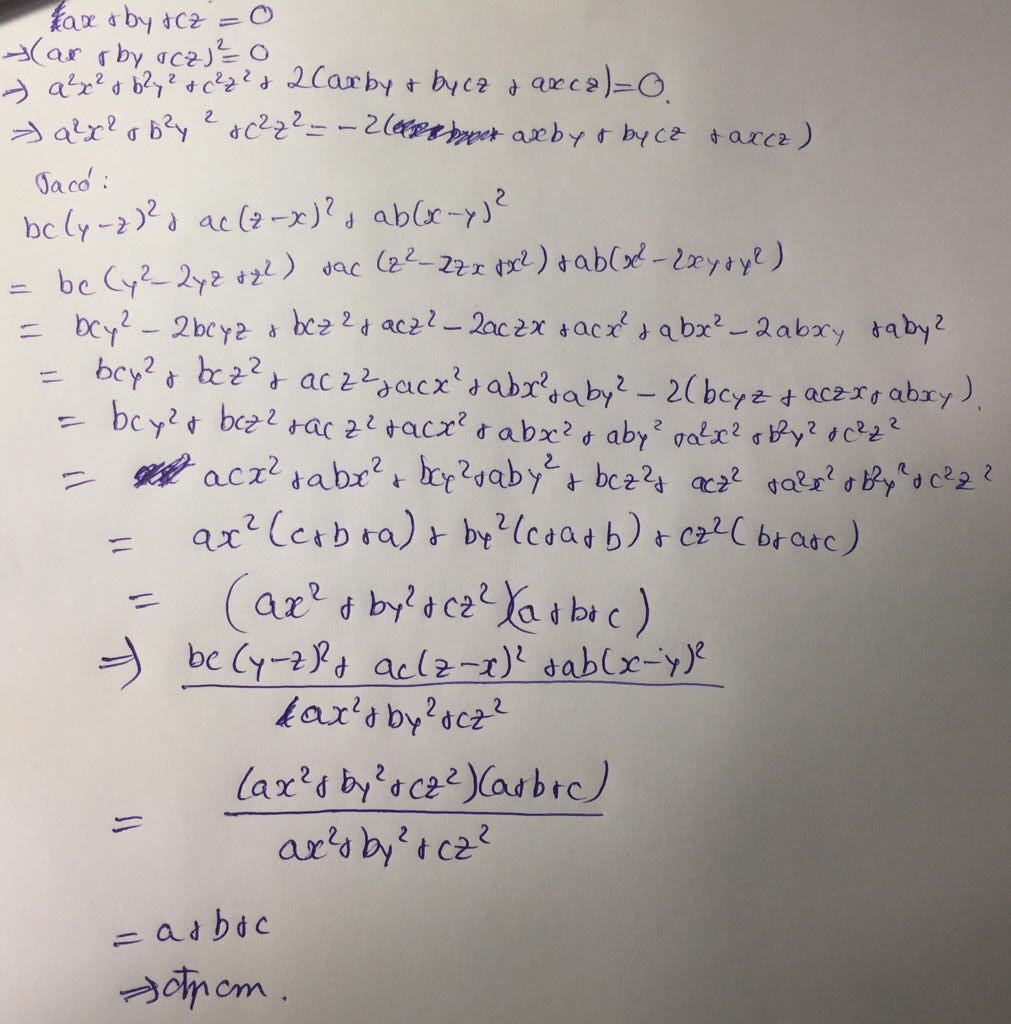 ax + by + cz = 0
→ (ax + by + cz)² = 0
→ a²x² + b²y² + c²z² + 2(axby + bycz + axcz) = 0.
⇒ a²x² + b²y² + c²z² = -2(axby + bycz + axcz)
Ta có:
bc(y-z)² + ac(z-x)² + ab(x-y)²
= bc(y² - 2yz + z²) + ac(z² - 2zx + x²) + ab(x² - 2xy + y²)
= bcy² - 2bcyz + bcz² + acz² - 2aczx + acx² + abx² - 2abxy + aby²
= bcy² + bcz² + acz² + acx² + abx² + aby² - 2(bcyz + aczx + abxy).
= bcy² + bcz² + acz² + acx² + abx² + aby² + a²x² + b²y² + c²z²
= acx² + abx² + bcy² + aby² + bcz² + acz² + a²x² + b²y² + c²z²
= ax²(c+b+a) + by²(c+a+b) + cz²(b+a+c)
= (ax² + by² + cz²)(a+b+c)
⇒ bc(y-z)² + ac(z-x)² + ab(x-y)²
ax² + by² + cz²
(ax² + by² + cz²)(a+b+c)
=
ax² + by² + cz²
= a+b+c
⇒ đpcm.